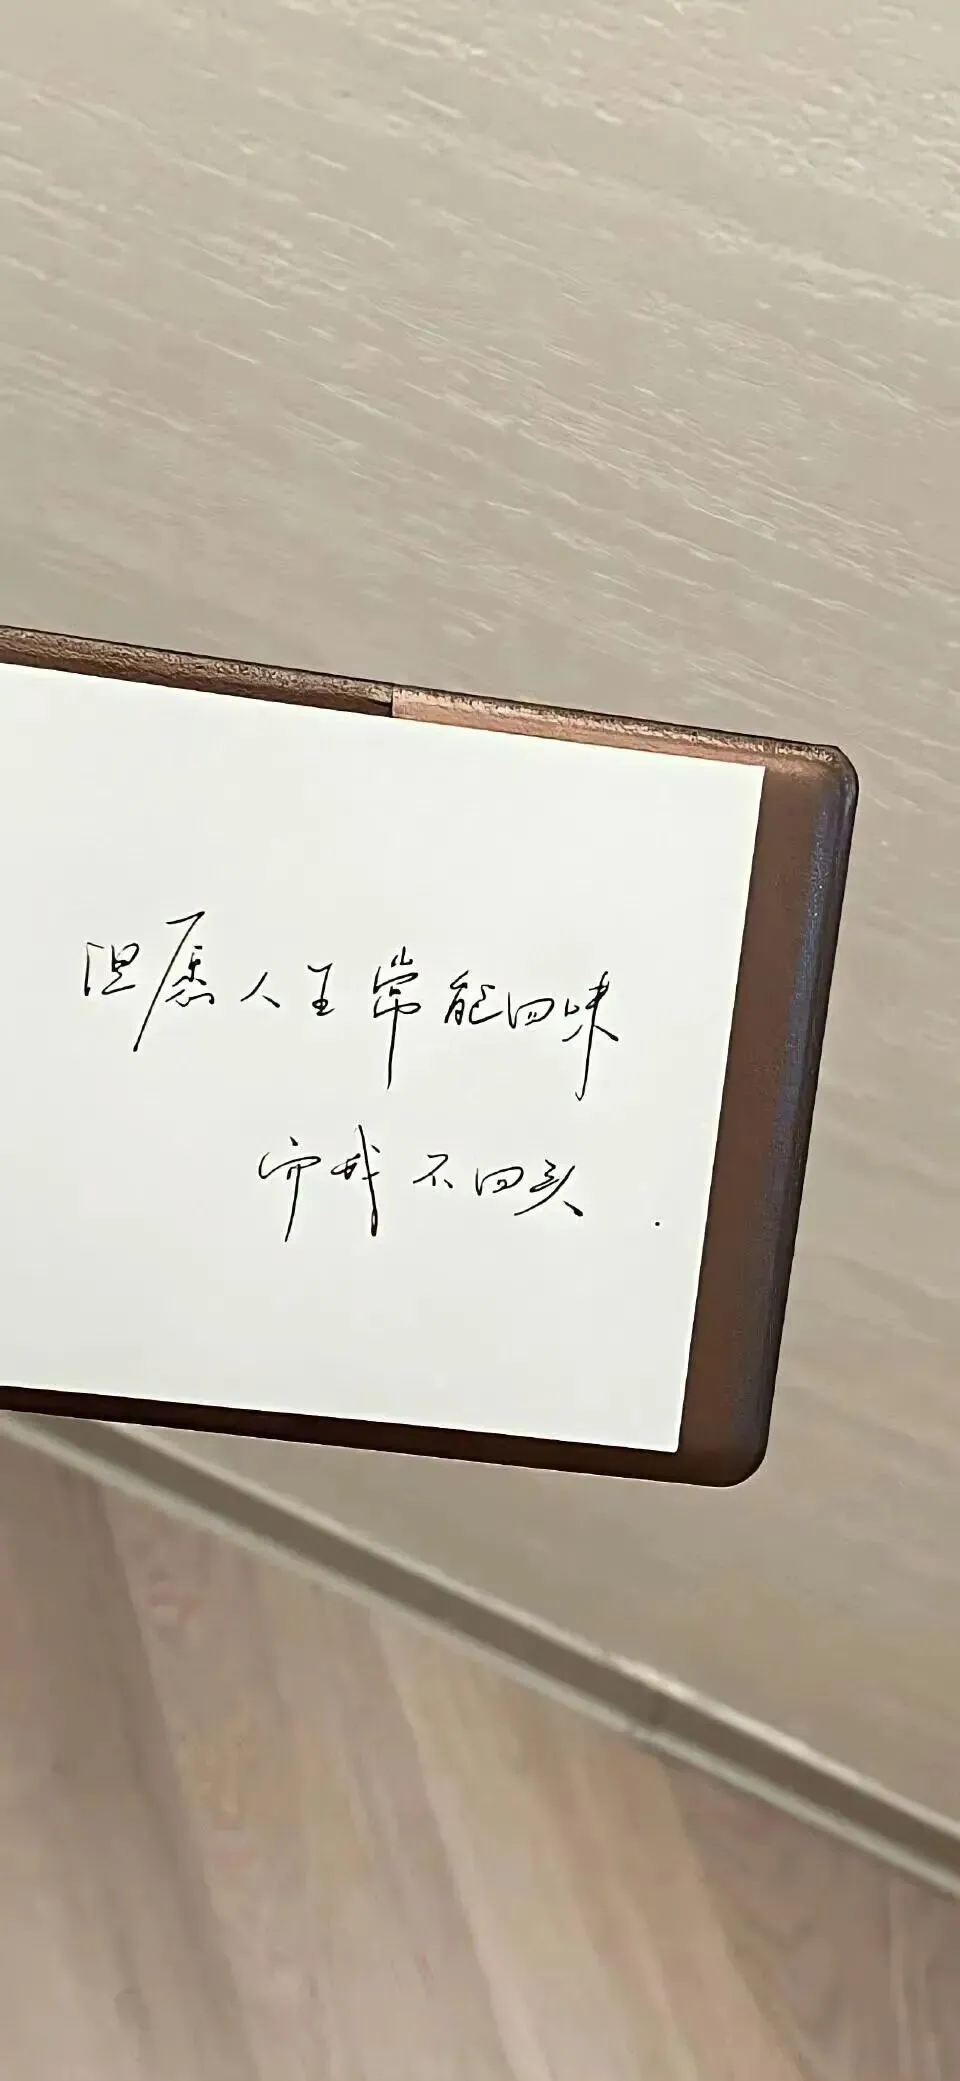 但愿人生常能回味
而我不回头.